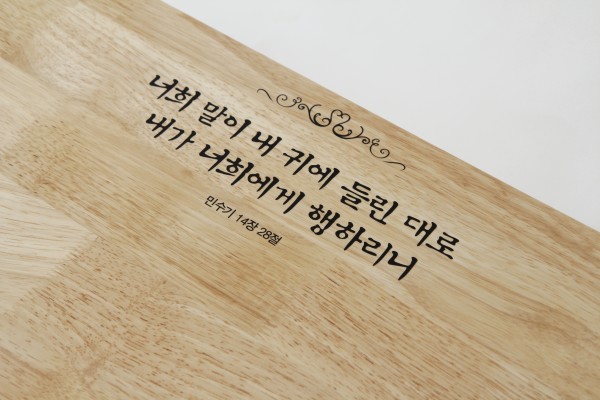 너희 말이 내 귀에 들린 대로
내가 너희에게 행하리니
민수기 14장 28절